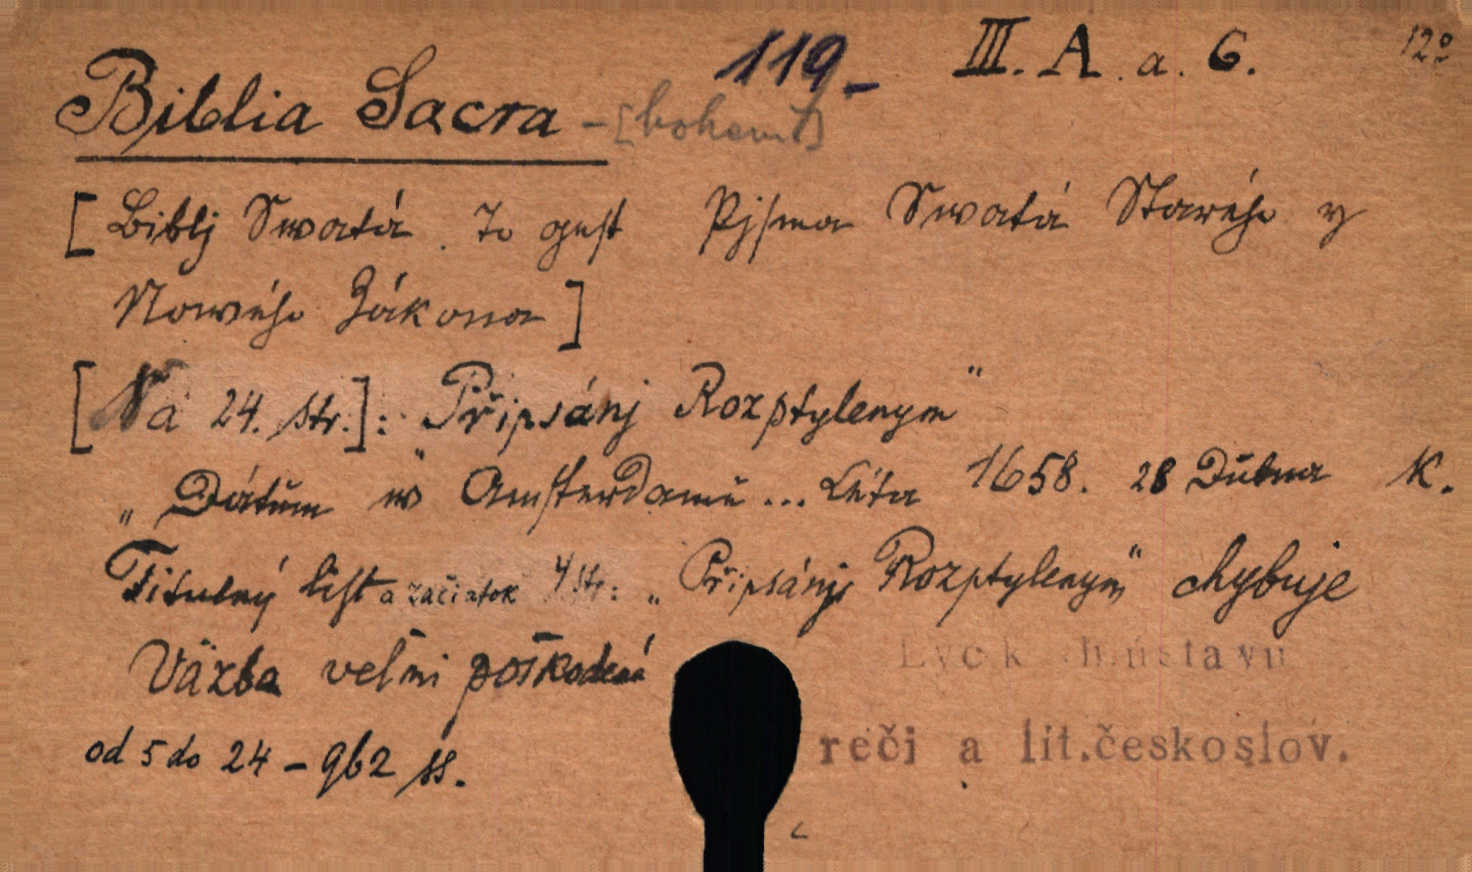 119- III. A. a. 6. 12º
Biblia Sacra - [bohemic]
[Biblj Swatá. To gest Pjsma Swatá Starého y
Nowého Zákona]
[Na 24. str.]: Připsánj Rozptyleným"
„Dátům w Amsterdamě... Léta 1658. 28 Dubna K.
Titulný list a začiatok 4 str: „Připsánj Rozptyleným" chybuje
Väzba veľmi poškodená
od 5 do 24 - 962 ss.
reči a lit. českoslov.